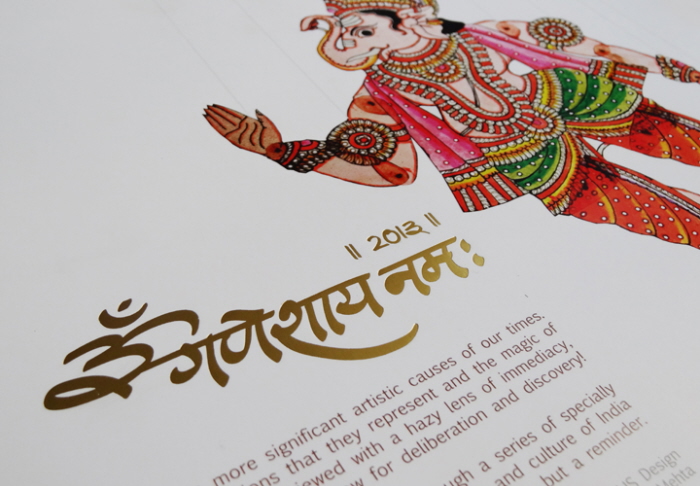 ॥ २०१३ ॥
ॐ गणेशाय नमः
more significant artistic causes of our times.
that they represent and the magic of
with a hazy lens of immediacy,
for deliberation and discovery!
a series of specially
and culture of India
but a reminder.
Design
Mehta